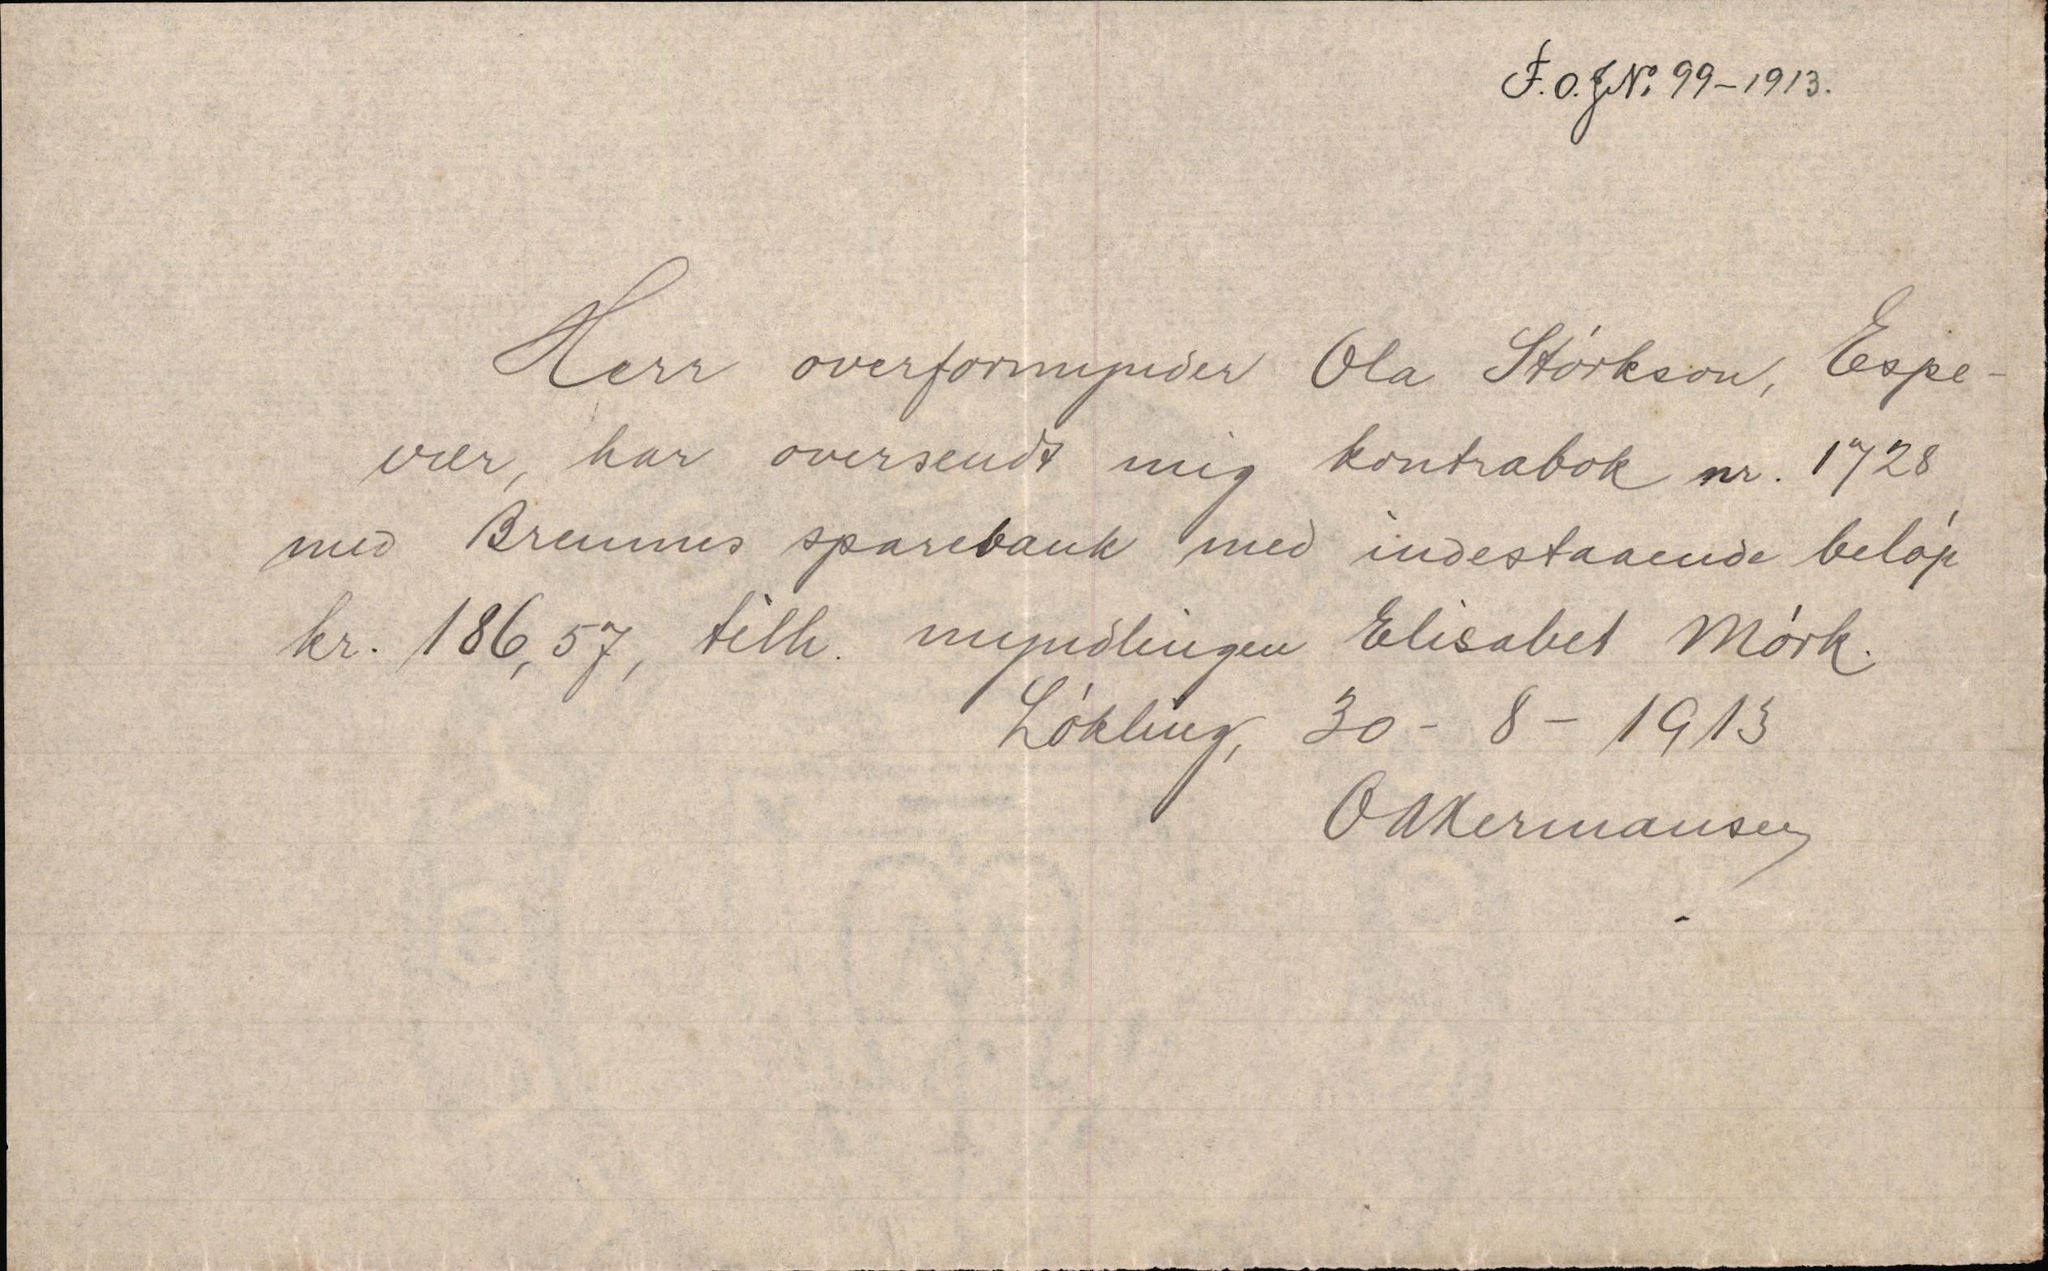 F.O.J No. 99-1913.
Herr overformynder Ola Störkson, Espe-
vær, har oversendt mig kontrabok nr. 1728
med Bremnes sparebank med indestaaende beløp
kr. 186,57, tilh. myndlingen Elisabet Mörk.
Lökling, 30 - 8 - 1913
O A Hermansen